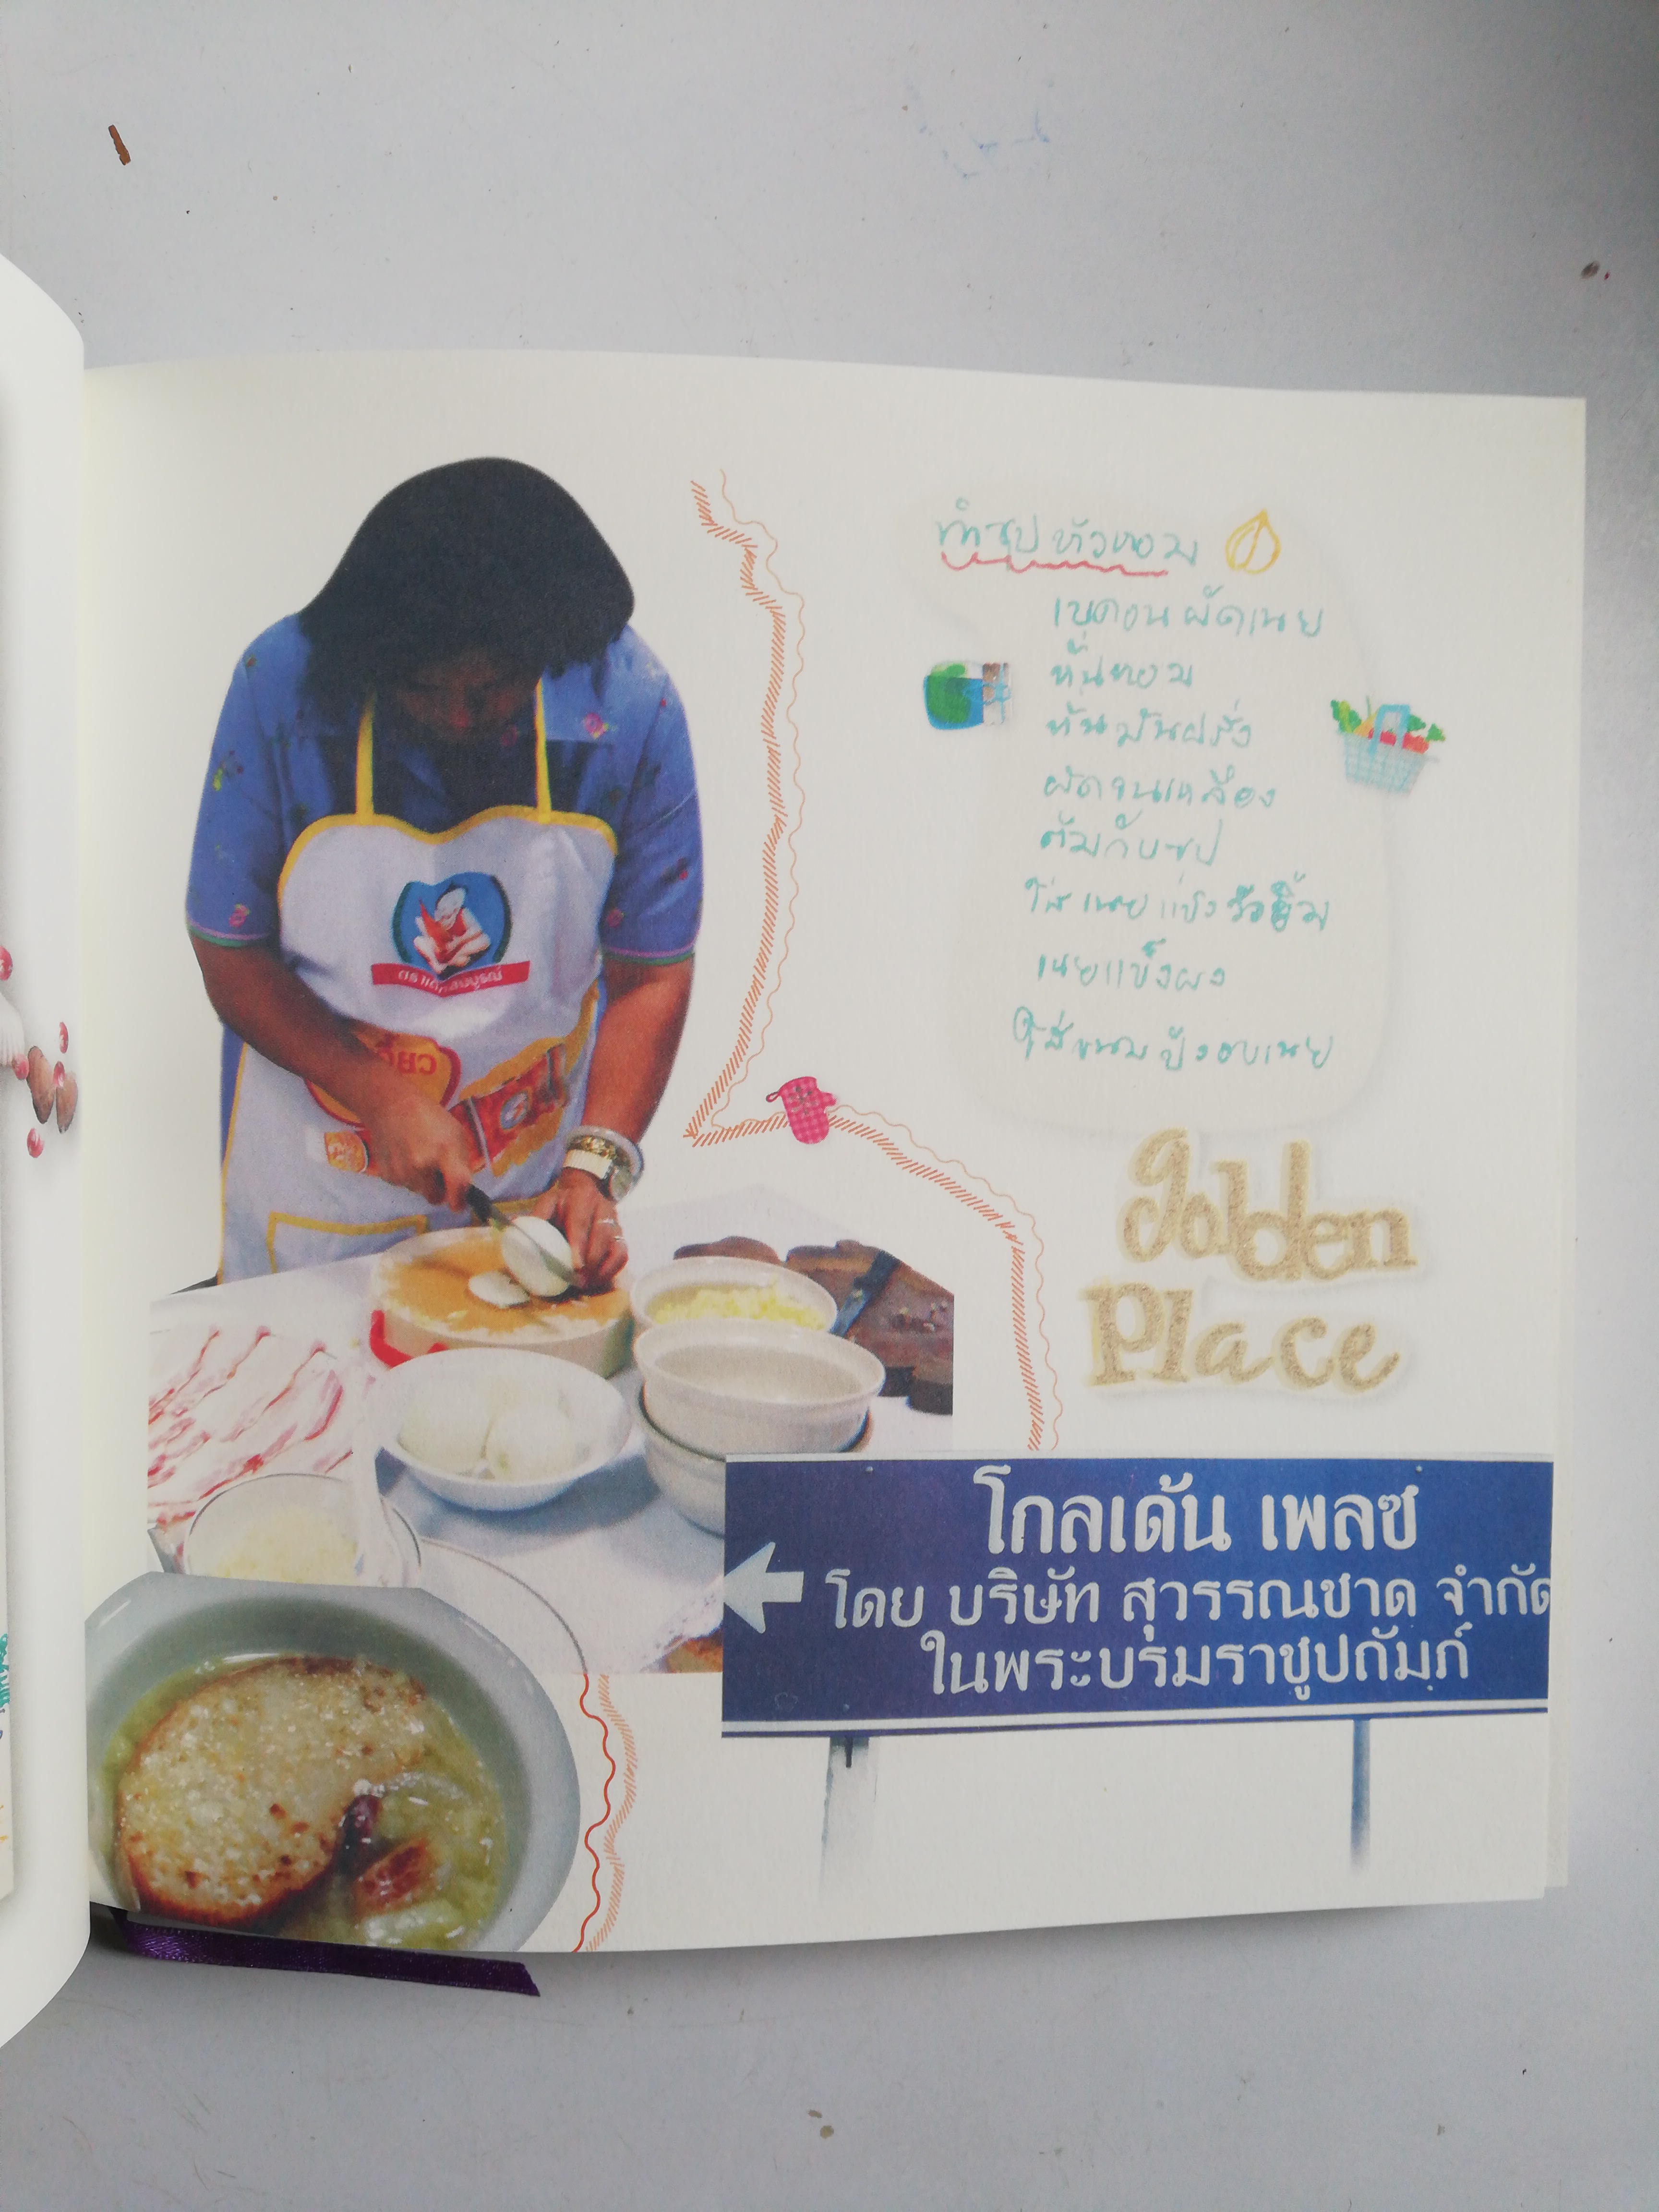 ทำซุปหัวหอม
เบคอนผัดเนย
หั่นหอม
หั่นมันฝรั่ง
ผัดจนเหลือง
ต้มกับซุป
ใส่เนยแข็ง
เนยแข็งผง
ใส่ขนมปังอบเนย
golden
Place
โกลเด้น เพลซ
โดย บริษัท สุวรรณชาด จำกัด
ในพระบรมราชูปถัมภ์